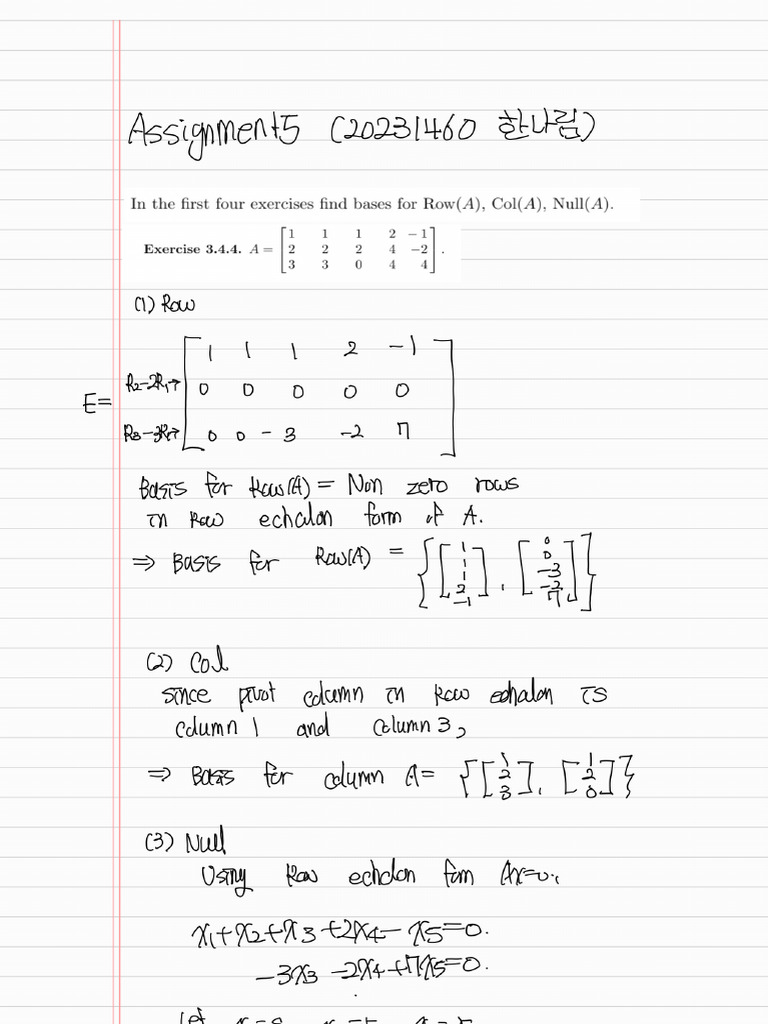 Assignment5 (20231460 한나림)
In the first four exercises find bases for Row(A), Col(A), Null(A).
Exercise 3.4.4. A = [1 1 1 2 −1
2 2 2 4 −2
3 3 0 4 4].
(1) Row
1 1 1 2 -1
R2-2R1→ 0 0 0 0 0
E=
R3-3R1→ 0 0 -3 -2 7
Basis for Row(A) = Non zero rows
in Row echelon form of A.
⇒ Basis for Row(A) = {[1 1 1 2 -1], [0 0 -3 -2 7]}
(2) Col
since pivot column in Row echalon is
column 1 and column 3,
⇒ Basis for column A= {[1 2 3], [1 2 0]}
(3) Null
Using Row echelon form Ax=0,
x1+x2+x3+2x4-x5=0.
-3x3-2x4+7x5=0.